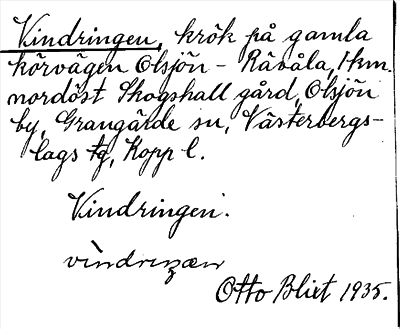 Vindringen, krök på gamla
körvägen Olsjön - Råvåla, 1 km.
nordöst Skogshall gård, Olsjön
by, Grangärde sn, Västerbergs-
lags tg, Kopp l.
Vindringen.
Otto Blixt 1935.